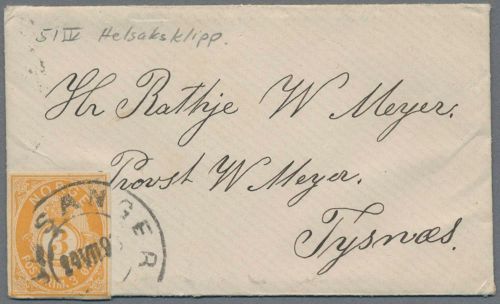 51 IV Helsaksklipp.
Hr Rathje W Meyer.
Provst W Meyer.
Tysnæs.
NORGE
3
POSTFRIM. 3
SANGER
24 VII 9